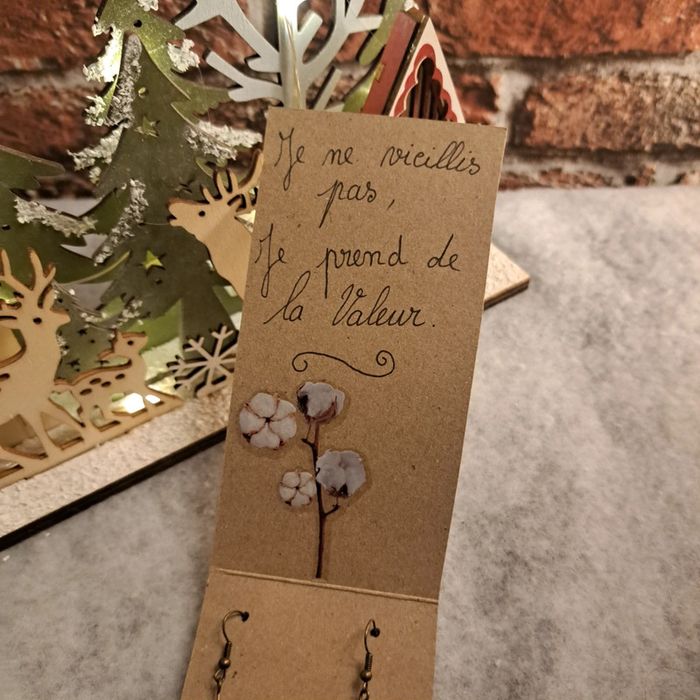 Je ne vieillis
pas,
Je prend de
la Valeur.